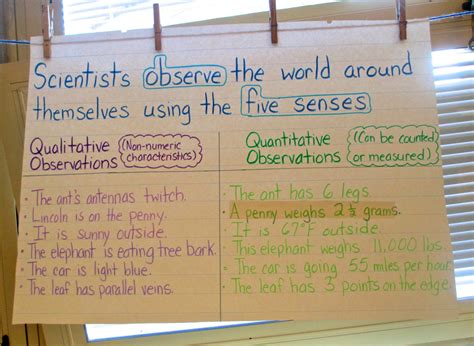 Scientists observe the world around
themselves using the five senses
Qualitative Observations (Non-numeric characteristics)
· The ant's antennas twitch.
· Lincoln is on the penny.
· It is sunny outside.
· The elephant is eating tree bark.
· The car is light blue.
· The leaf has parallel veins.
Quantitative Observations (Can be counted or measured)
· The ant has 6 legs.
· A penny weighs 2 ½ grams.
· It is 67°F outside.
· This elephant weighs 11,000 lbs.
· The car is going 55 miles per hour
· The leaf has 3 points on the edge